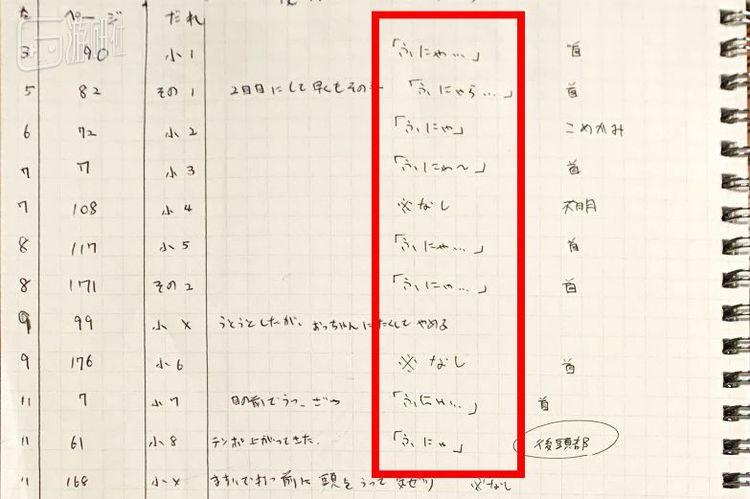 ページ だれ
3 90 小1 「ふにゃ…」 首
5 82 その1 2日目にして早くもその 「ふにゃら…」 首
6 72 小2 「ふにゃ」 こめかみ
7 7 小3 「ふにゃ〜」 首
7 108 小4 ※なし 不明
8 117 小5 「ふにゃ…」 首
8 171 その2 「ふにゃ…」 首
9 99 小× うとうとしたが、おっちゃんにたくしてやめる
9 176 小6 ※なし 首
11 7 小7 目の前でうつ 「ふにゃ…」 首
11 61 小8 テンポ上がってきた。 「ふにゃ」 後頭部
11 168 小× 打つ前に頭をうって ※なし